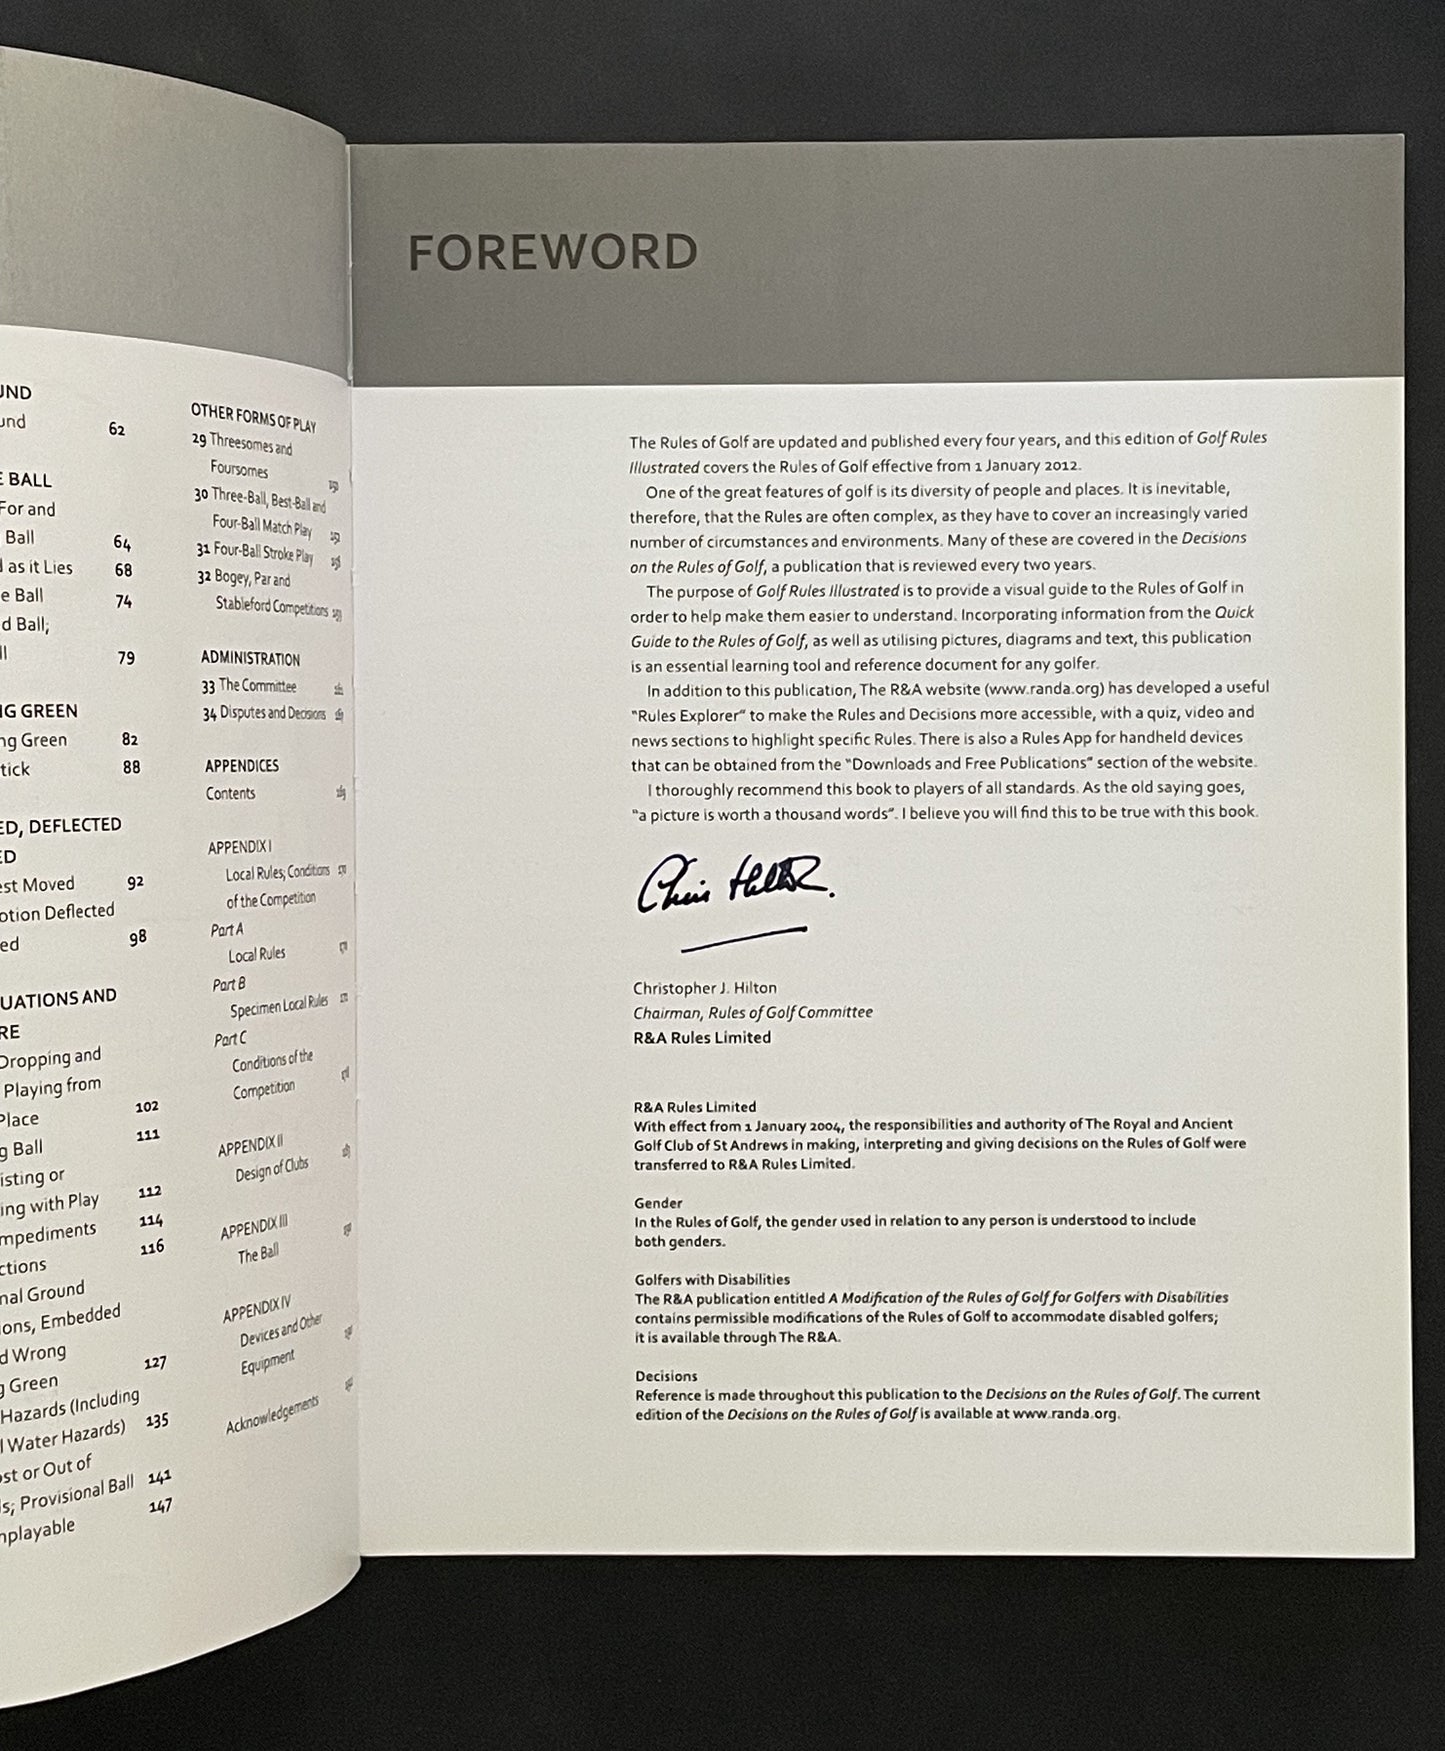 UND
und 62
E BALL
For and
Ball 64
d as it Lies 68
e Ball 74
d Ball;
ll 79
NG GREEN
ng Green 82
tick 88
ED, DEFLECTED
ED
est Moved 92
otion Deflected
ed 98
UATIONS AND
RE
Dropping and
Playing from
Place 102
g Ball 111
isting or
ing with Play 112
mpediments 114
ctions 116
nal Ground
ions, Embedded
d Wrong
g Green 127
Hazards (Including
l Water Hazards) 135
ost or Out of
ds; Provisional Ball 141
nplayable 147
OTHER FORMS OF PLAY
29 Threesomes and
Foursomes
30 Three-Ball, Best-Ball and
Four-Ball Match Play
31 Four-Ball Stroke Play
32 Bogey, Par and
Stableford Competitions
ADMINISTRATION
33 The Committee
34 Disputes and Decisions
APPENDICES
Contents
APPENDIX I
Local Rules; Conditions
of the Competition
Part A
Local Rules
Part B
Specimen Local Rules
Part C
Conditions of the
Competition
APPENDIX II
Design of Clubs
APPENDIX III
The Ball
APPENDIX IV
Devices and Other
Equipment
Acknowledgements
FOREWORD
The Rules of Golf are updated and published every four years, and this edition of Golf Rules
Illustrated covers the Rules of Golf effective from 1 January 2012.
One of the great features of golf is its diversity of people and places. It is inevitable,
therefore, that the Rules are often complex, as they have to cover an increasingly varied
number of circumstances and environments. Many of these are covered in the Decisions
on the Rules of Golf, a publication that is reviewed every two years.
The purpose of Golf Rules Illustrated is to provide a visual guide to the Rules of Golf in
order to help make them easier to understand. Incorporating information from the Quick
Guide to the Rules of Golf, as well as utilising pictures, diagrams and text, this publication
is an essential learning tool and reference document for any golfer.
In addition to this publication, The R&A website (www.randa.org) has developed a useful
"Rules Explorer" to make the Rules and Decisions more accessible, with a quiz, video and
news sections to highlight specific Rules. There is also a Rules App for handheld devices
that can be obtained from the "Downloads and Free Publications" section of the website.
I thoroughly recommend this book to players of all standards. As the old saying goes,
"a picture is worth a thousand words". I believe you will find this to be true with this book.
Chris Hilton.
Christopher J. Hilton
Chairman, Rules of Golf Committee
R&A Rules Limited
R&A Rules Limited
With effect from 1 January 2004, the responsibilities and authority of The Royal and Ancient
Golf Club of St Andrews in making, interpreting and giving decisions on the Rules of Golf were
transferred to R&A Rules Limited.
Gender
In the Rules of Golf, the gender used in relation to any person is understood to include
both genders.
Golfers with Disabilities
The R&A publication entitled A Modification of the Rules of Golf for Golfers with Disabilities
contains permissible modifications of the Rules of Golf to accommodate disabled golfers;
it is available through The R&A.
Decisions
Reference is made throughout this publication to the Decisions on the Rules of Golf. The current
edition of the Decisions on the Rules of Golf is available at www.randa.org.